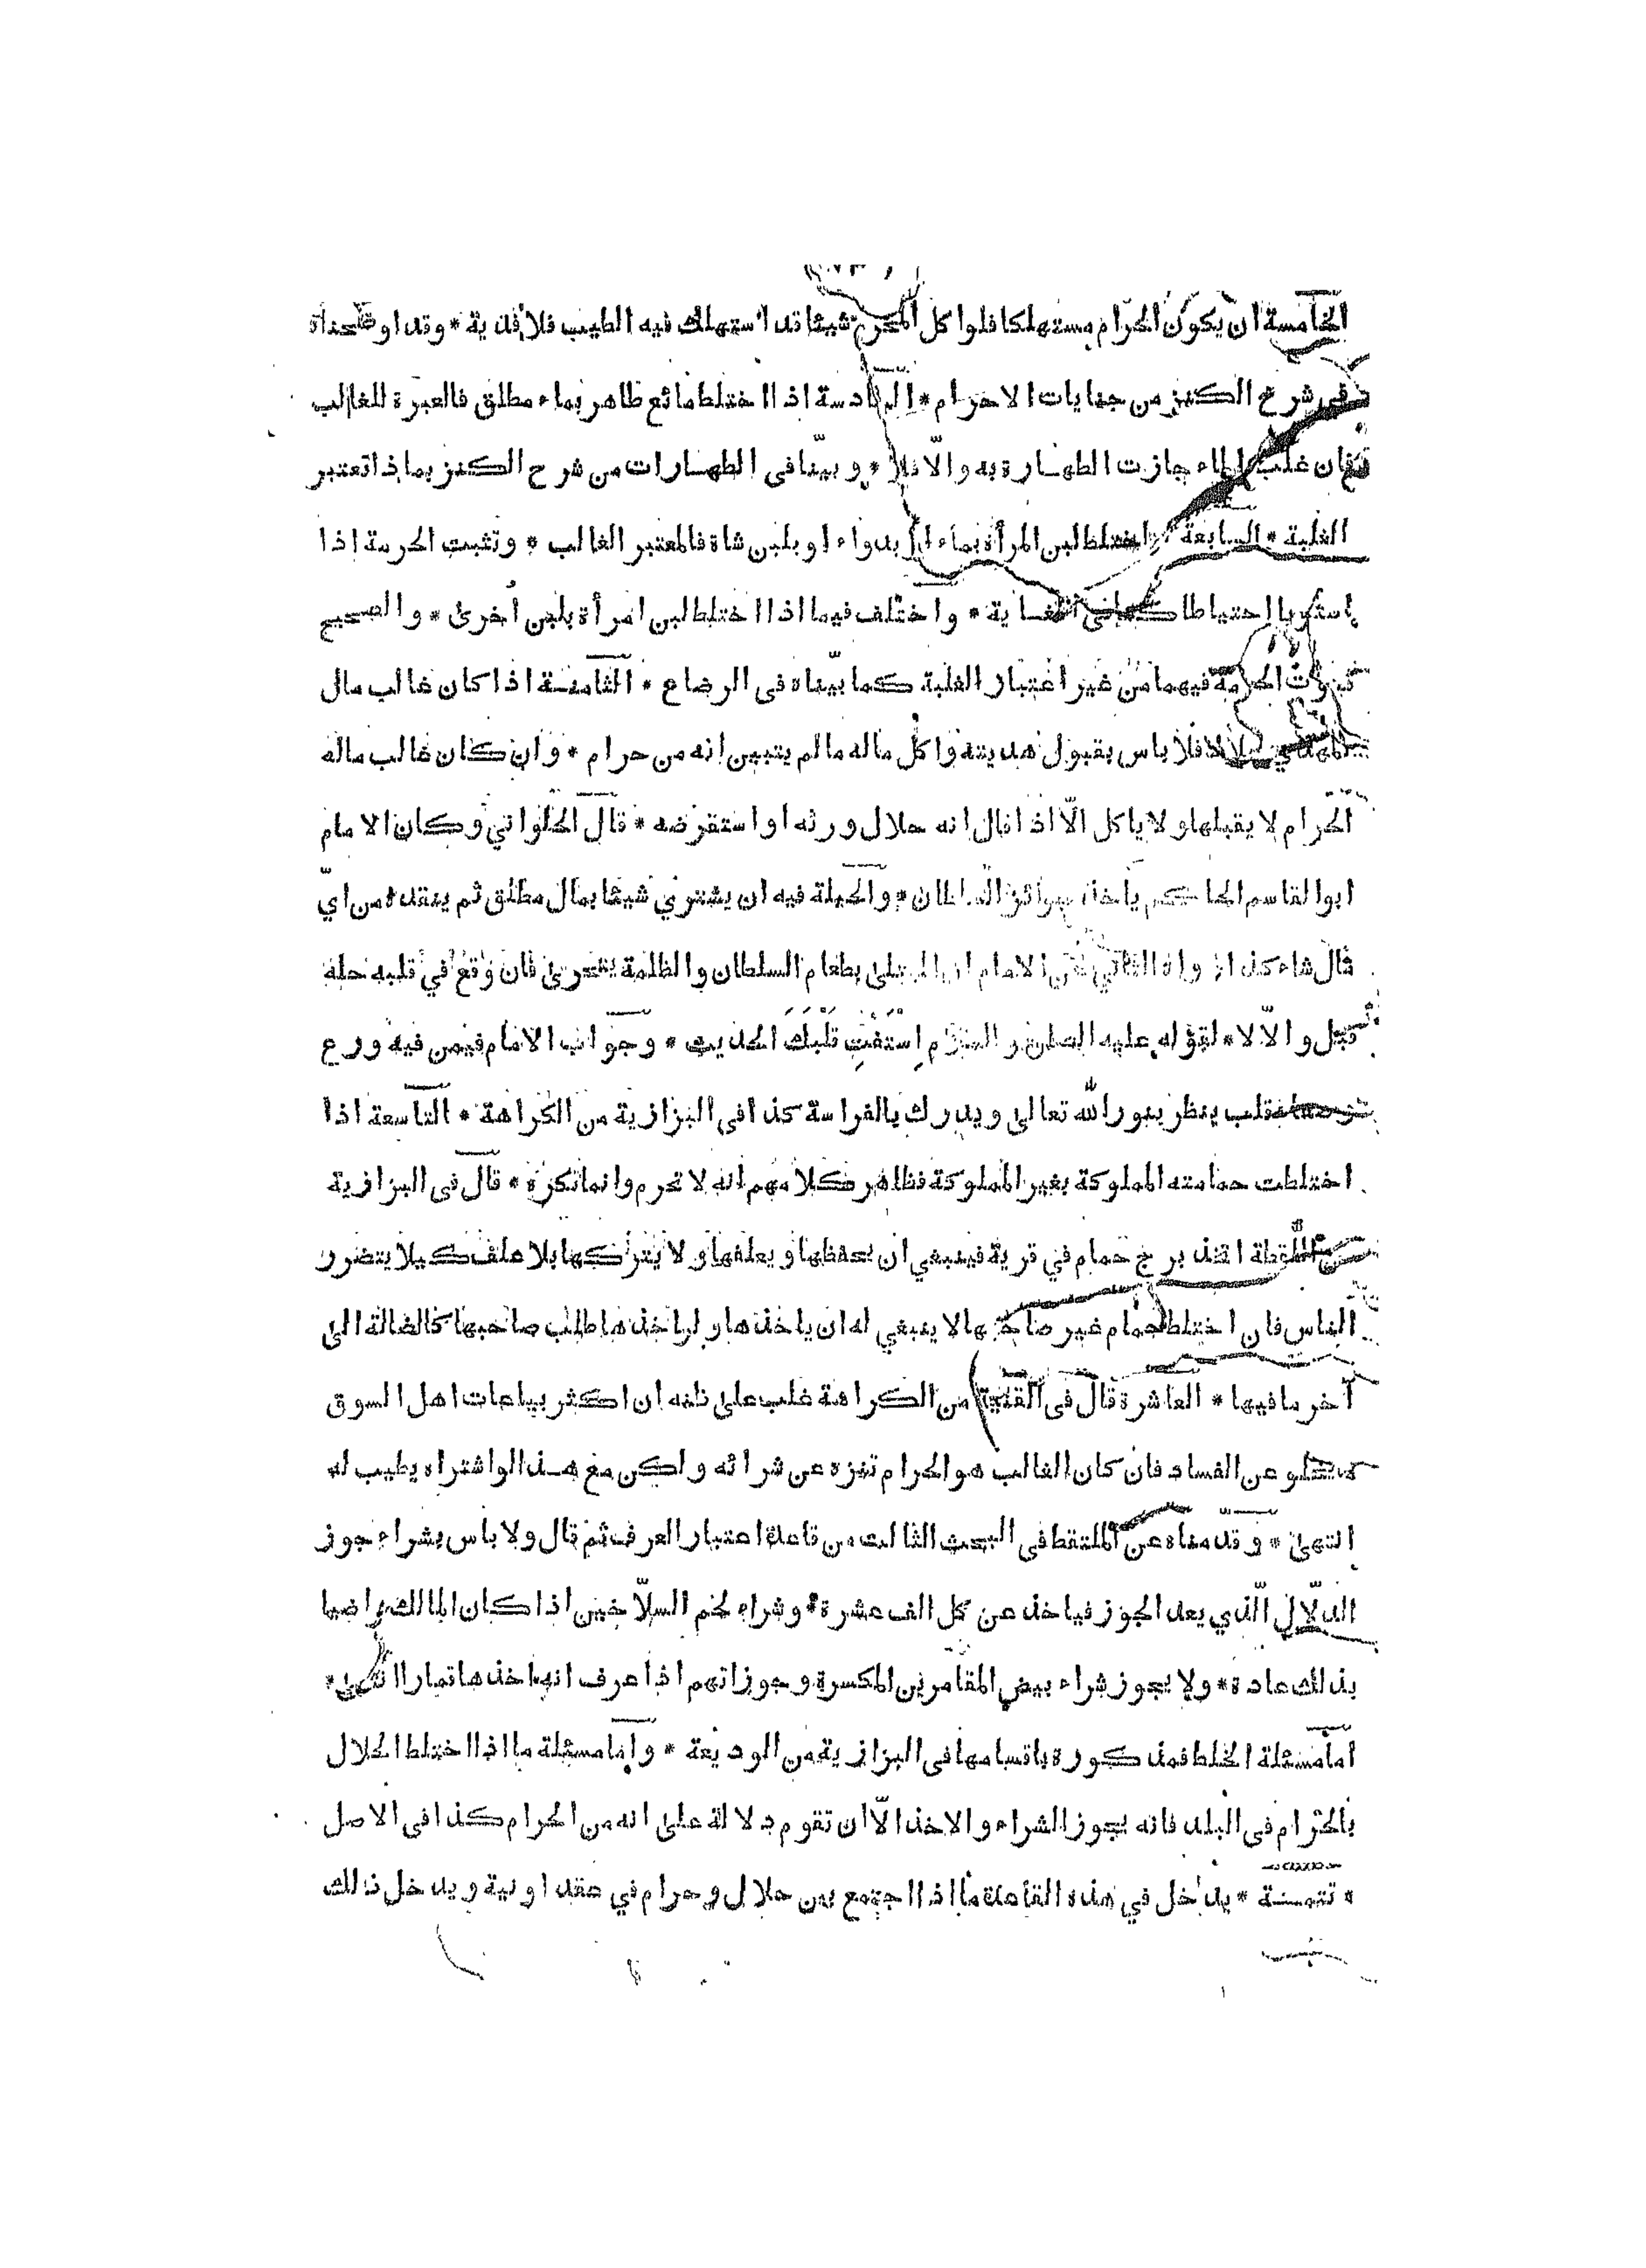 الخامسة ان يكون الحرام مستهلكا فلو اكل المحرم شيئا قد استهلك فيه الطيب فلا فدية * وقد اوضحناه
في شرح الكنز من جنايات الاحرام * السادسة اذا اختلط مائع طاهر بماء مطلق فالعبرة للغالب
فان غلب الماء جازت الطهارة به والّا فلا * وبينّا فى الطهارات من شرح الكنز بماذا تعتبر
الغلبة * السابعة اختلط لبن المرأة بماء او بدواء او بلبن شاة فالمعتبر الغالب * وتثبت الحرمة اذا
استويا احتياطا كما فى الغاية * واختلف فيما اذا اختلط لبن امرأة بلبن أخرى * والصحيح
ثبوت الحرمة فيهما من غير اعتبار الغلبة كما بيّناه فى الرضاع * الثامنة اذا كان غالب مال
المهدي حلالا فلا باس بقبول هديته واكل ماله ما لم يتبين انه من حرام * وان كان غالب ماله
الحرام لا يقبلها ولا ياكل الّا اذا قال انه حلال ورثه او استقرضه * قال الحلواني وكان الامام
ابو القاسم الحاكم يأخذ جوائز السلطان * والحيلة فيه ان يشتري شيئا بمال مطلق ثم ينقده من ايّ
مال شاء كذا رواه الثاني عن الامام ان المبتلى بطعام السلطان والظلمة يتحرى فان وقع في قلبه حله
قبل والّا لا * لقوله عليه الصلوة والسلام اِسْتَفْتِ قَلْبَكَ الحديث * وجواب الامام فيمن فيه ورع
وصفاء قلب ينظر بنور الله تعالى ويدرك بالفراسة كذا فى البزازية من الكراهة * التاسعة اذا
اختلطت حمامته المملوكة بغير المملوكة فظاهر كلامهم انه لا تحرم وانما تكره * قال فى البزازية
من اللقطة اتخذ برج حمام في قرية فينبغي ان يحفظها ويعلفها ولا يتركها بلا علف كيلا يتضرر
الناس فان اختلط حمام غير صاحبها لا ينبغي له ان ياخذها ولو اخذها طلب صاحبها كالضالة الى
آخر ما فيها * العاشرة قال فى القنية من الكراهة غلب على ظنه ان اكثر بياعات اهل السوق
لا يخلو عن الفساد فان كان الغالب هو الحرام تنزه عن شرائه ولكن مع هذا لو اشتراه يطيب له
انتهى * وقدّمناه عن الملتقط فى البحث الثالث من قاعدة اعتبار العرف ثم قال ولا باس بشراء جوز
الدلّال الّذي يعد الجوز فياخذ عن كل الف عشرة * وشراء لحم السلّاخين اذا كان المالك راضيا
بذلك عادة * ولا يجوز شراء بيض المقامرين المكسرة وجوزاتهم اذا عرف انه اخذها قمارا انتهى *
اما مسئلة الخلط فمذكورة باقسامها فى البزازية من الوديعة * واما مسئلة ما اذا اختلط الحلال
بالحرام فى البلد فانه يجوز الشراء والاخذ الّا ان تقوم دلالة على انه من الحرام كذا فى الاصل
* تتمسة * يدخل في هذه القاعدة ما اذا اجتمع بين حلال وحرام في عقد او نية ويدخل ذلك